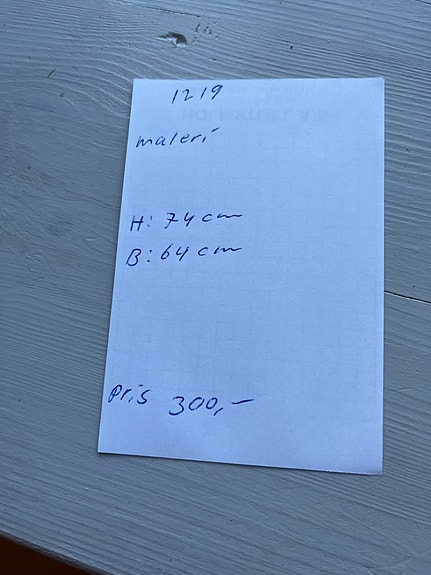 1219
maleri
H: 74 cm
B: 64 cm
Pris 300,-